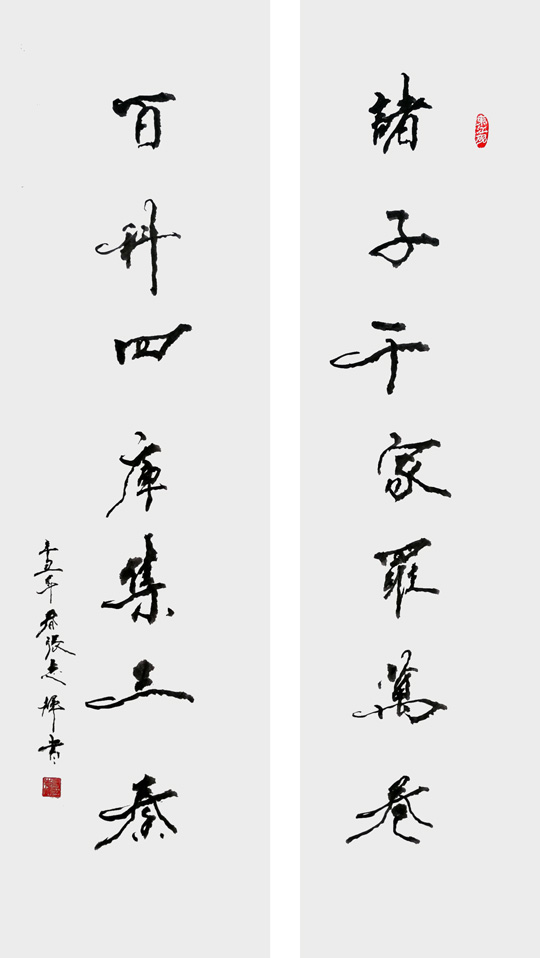 諸子千家羅萬卷
百科四庫集三秦
五年春張志輝書